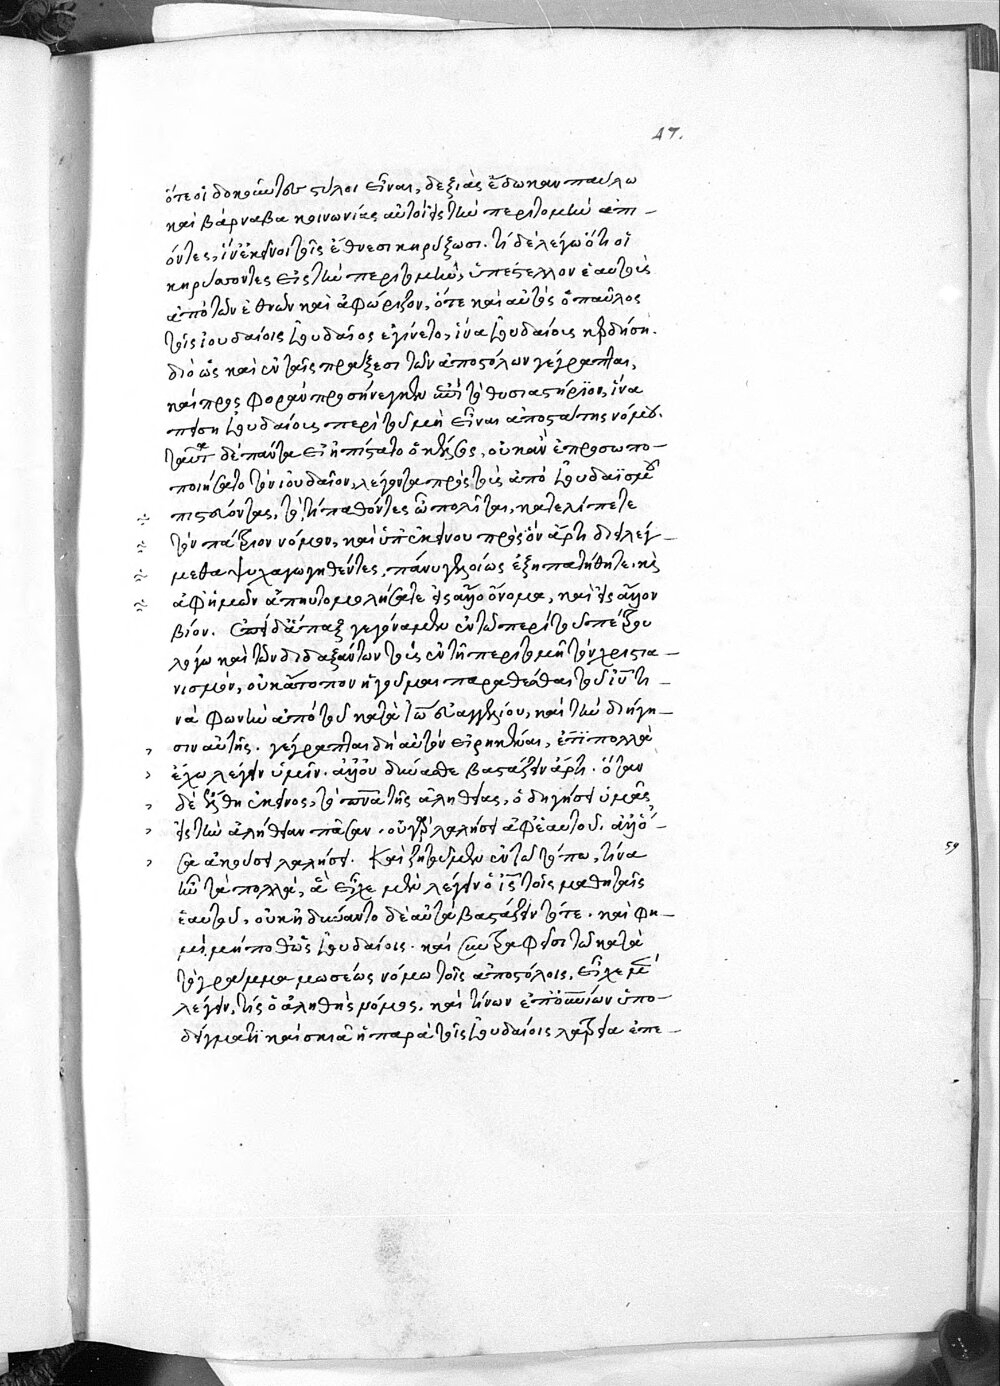 47.
ὅτε οἱ δοκοῦντες στύλοι εἶναι, δεξιὰς ἔδωκαν παύλω
καὶ βάρναβα κοινωνίας αὐτοὶ εἰς τὴν περιτομὴν ἀπι-
όντες, ἵν' ἐκεῖνοι τοῖς ἔθνεσι κηρύξωσι. τί δὲ λέγω ὅτι οἱ
κηρύσσοντες εἰς τὴν περιτομὴν, ὑπέστελλον ἑαυτοὺς
ἀπὸ τῶν ἐθνῶν καὶ ἀφώριζον, ὅτε καὶ αὐτὸς ὁ παῦλος
τοῖς ἰουδαίοις ἰουδαῖος ἐγίνετο, ἵνα ἰουδαίους κερδήση.
διὸ ὡς καὶ ἐν ταῖς πράξεσι τῶν ἀποστόλων γέγραπται,
καὶ προσφορὰν προσήνεγκεν ἐπὶ τὸ θυσιαστήριον, ἵνα
πείση ἰουδαίους περὶ τοῦ μὴ εἶναι ἀποστάτης νόμου.
ταῦτ δὲ πάντα εἰ ἠπίστατο ὁ κέλσος, οὐκ ἂν ἐπροσωπο-
ποιήσατο τὸν ἰουδαῖον, λέγοντα πρὸς τοὺς ἀπὸ ἰουδαϊσμοῦ
πιστεύοντας, τὸ, τί παθόντες ὦ πολῖται, κατελίπετε
τὸν πάτριον νόμον, καὶ ὑπ' ἐκείνου πρὸς ὃν ἄρτι διειλέγ-
μεθα ψυχαγωγηθέντες, πάνυ γελοίως ἐξηπατήθητε, καὶ
ἀφ' ἡμῶν ἀπηυτομολήσατε εἰς ἄλλο ὄνομα, καὶ εἰς ἄλλον
βίον. ἐπεὶ δ' ἅπαξ γεγόναμεν ἐν τῶ περὶ τοῦ πέτρου
λόγω καὶ τῶν διδαξάντων τοὺς ἐν τῆ περιτομῆ τὸν χριστια-
νισμὸν, οὐκ ἄτοπον ἡγοῦμαι παραθέσθαι τοῦ ιυ τι-
νὰ φωνὴν ἀπὸ τοῦ κατὰ ιω εὐαγγελίου, καὶ τὴν διήγη-
σιν αὐτῆς. γέγραπται δὴ αὐτὸν εἰρηκέναι, ἔτι πολλὰ
ἔχω λέγειν ὑμῖν. ἀλλ' οὐ δύνασθε βαστάζειν ἄρτι. ὅταν
δὲ ἔλθη ἐκεῖνος, τὸ πνα τῆς ἀληθείας, ὁδηγήσει ὑμᾶς
εἰς τὴν ἀλήθειαν πᾶσαν. οὐ γὰρ λαλήσει ἀφ' ἑαυτοῦ, ἀλλ' ὅ-
σα ἀκούσει λαλήσει. καὶ ζητοῦμεν ἐν τῶ τόπω, τίνα
ἦν τὰ πολλὰ, ἃ εἶχε μὲν λέγειν ὁ ις τοῖς μαθηταῖς
ἑαυτοῦ, οὐκ ἠδύναντο δὲ αὐτὰ βαστάζειν τότε. καὶ φη-
μὶ, μήποθ' ὡς ἰουδαίοις. καὶ συντραφεῖσι τῶ κατὰ
τὸ γράμμα μωσέως νόμω τοῖς ἀποστόλοις, εἶχε μὲν
λέγειν, τίς ὁ ἀληθὴς νόμος, καὶ τίνων ἐπουρανίων ὑπο-
δείγματι καὶ σκιᾶ ἡ παρὰ τοῖς ἰουδαίοις λατρεία ἐπε-
59